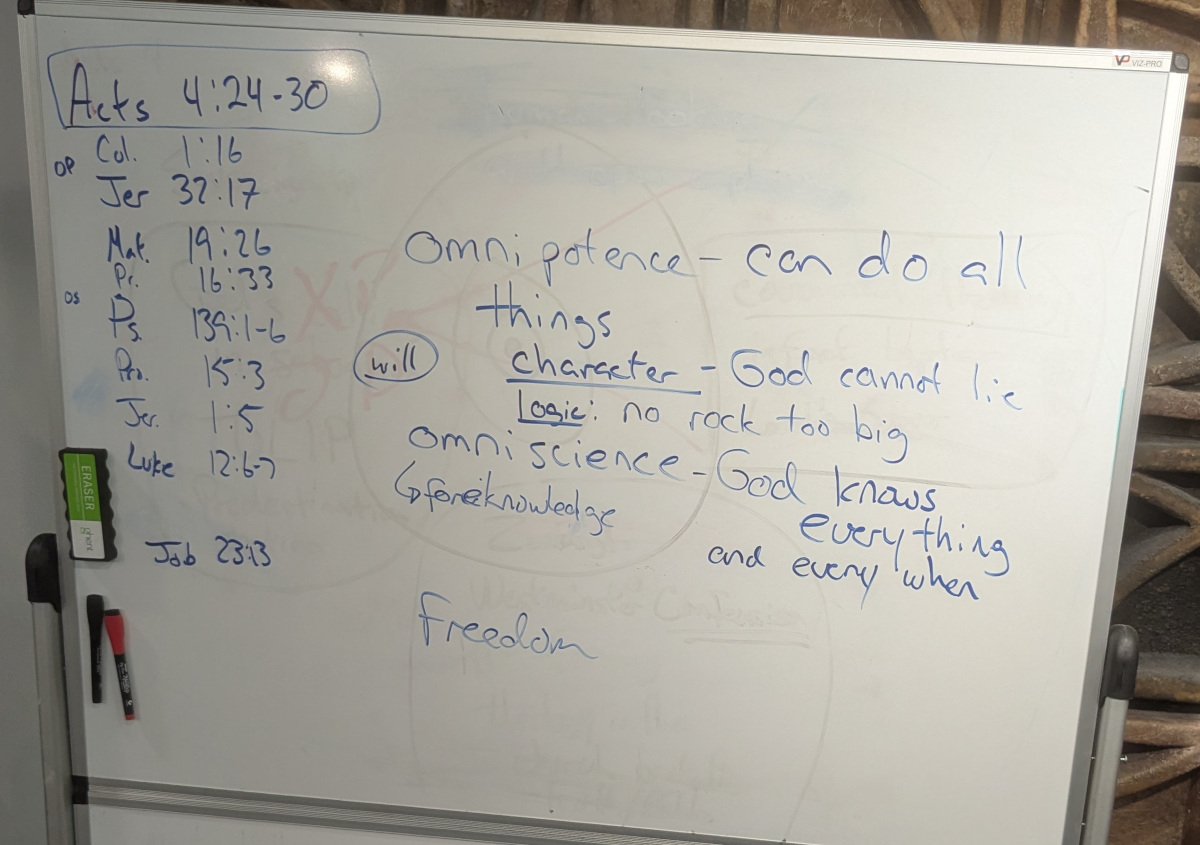 VP VIZ-PRO
Acts 4:24-30
Col. 1:16
OP
Jer 32:17
Mat. 19:26
Pr. 16:33
OS
Ps. 139:1-6
Pro. 15:3
Jer. 1:5
Luke 12:6-7
Job 23:13
Omnipotence - can do all
things
will
character - God cannot lie
Logic: no rock too big
omniscience - God knows
everything
and every when
↳foreknowledge
freedom
ERASER